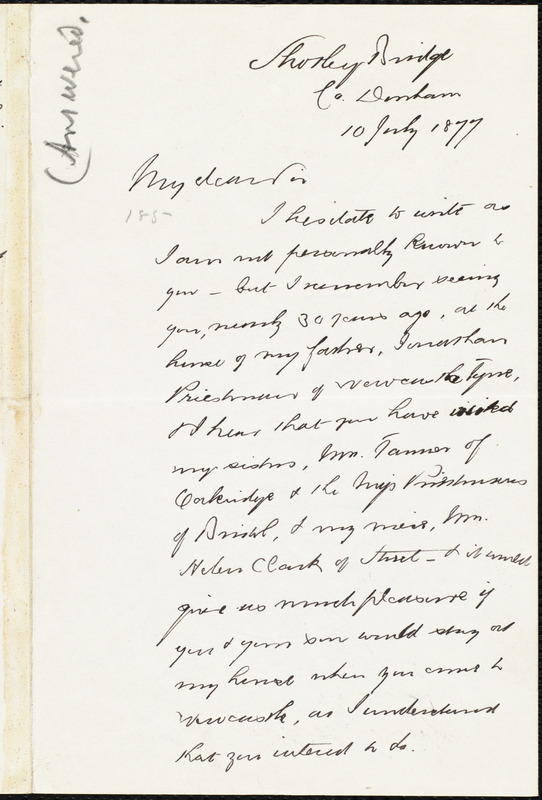 (Answered.
Shotley Bridge
Co. Durham
10 July 1877
My dear Sir
185-
I hesitate to write as
I am not personally known to
you - but I remember seeing
you, nearly 30 years ago, at the
house of my father, Jonathan
Priestman of Newcastle Tyne,
& I hear that you have visited
my sisters, Mrs. Tanner of
Oakridge & the Miss Priestmans
of Bristol, & my niece, Mrs.
Helen Clark of Street - & it would
give us much pleasure if
you & your son would stay at
my house when you come to
Newcastle, as I understand
that you intend to do.